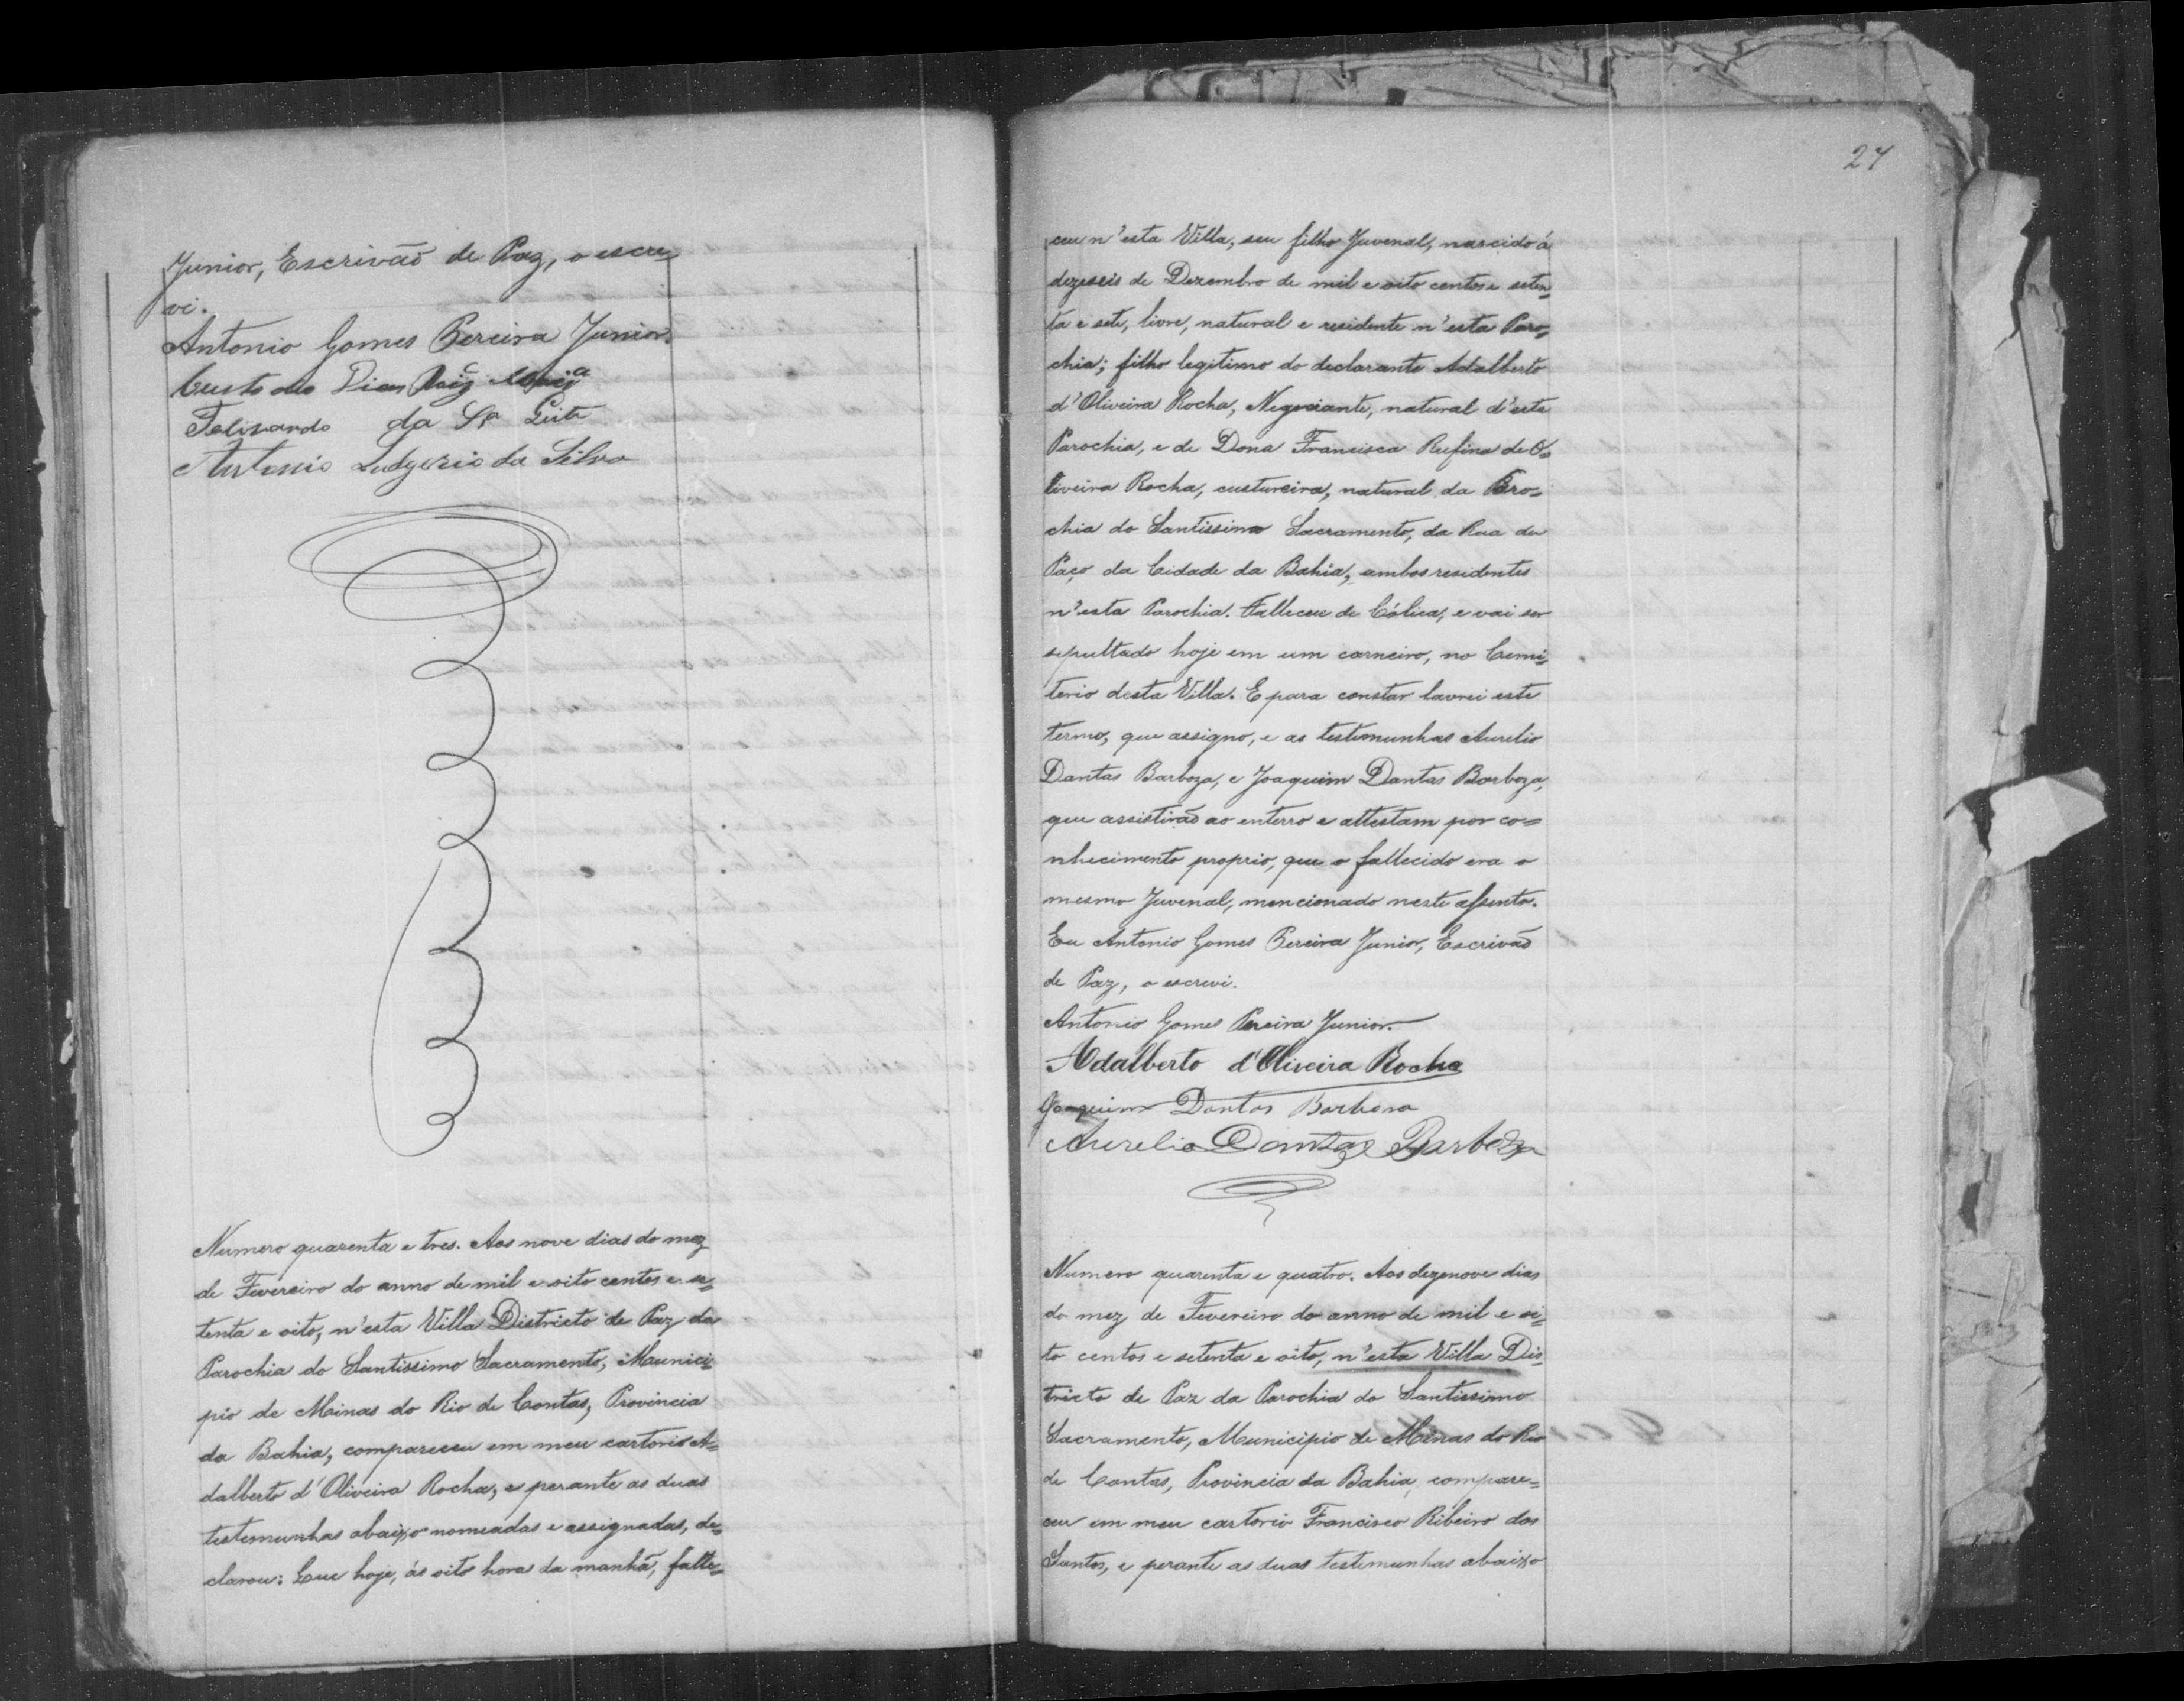 Junior, Escrivaõ de Paz, o escre-
vi.
Antonio Gomes Pereira Junior.
Custodio Dias
Felisardo da Sª Leite
Antonio Ludgerio da Silva
Numero quarenta e tres. Aos nove dias do mez
de Fevereiro do anno de mil e oito centos e se-
tenta e oito, n'esta Villa Districto de Paz da
Parochia do Santissimo Sacramento, Munici-
pio de Minas do Rio de Contas, Provincia
da Bahia, compareceu em meu cartorio A-
dalberto d'Oliveira Rocha, e perante as duas
testemunhas abaixo nomeadas e assignadas, de-
clarou: Que hoje, ás oito horas da manhã, falle-
27
ceu n'esta Villa, seu filho Juvenal, nascido á
dezeseis de Dezembro de mil e oito centos e seten-
ta e sete, livre, natural e residente n'esta Paro-
chia; filho legitimo do declarante Adalberto
d'Oliveira Rocha, Negociante, natural d'esta
Parochia, e de Dona Francisca Rufina de O-
liveira Rocha, custureira, natural da Paro-
chia do Santissimo Sacramento, da Rua do
Paço da Cidade da Bahia, ambos residentes
n'esta Parochia. Falleceu de Cólica, e vai ser
sepultado hoje em um carneiro, no Cemi-
terio desta Villa. E para constar lavrei este
termo, que assigno, e as testemunhas Aurelio
Dantas Barboza, e Joaquim Dantas Barboza,
que assistiraõ ao enterro e attestam por co-
nhecimento proprio, que o fallecido era o
mesmo Juvenal, mencionado neste assento.
Eu Antonio Gomes Pereira Junior, Escrivaõ
de Paz, o escrevi.
Antonio Gomes Pereira Junior.
Adalberto d'Oliveira Rocha
Joaquim Dantas Barbosa
Aurelio Dantas Barboza
Numero quarenta e quatro. Aos dezenove dias
do mez de Fevereiro do anno de mil e oi-
to centos e setenta e oito, n'esta Villa Dis-
tricto de Paz da Parochia do Santissimo
Sacramento, Municipio de Minas do Rio
de Contas, Provincia da Bahia, compare-
ceu em meu cartorio Francisco Ribeiro dos
Santos, e perante as duas testemunhas abaixo